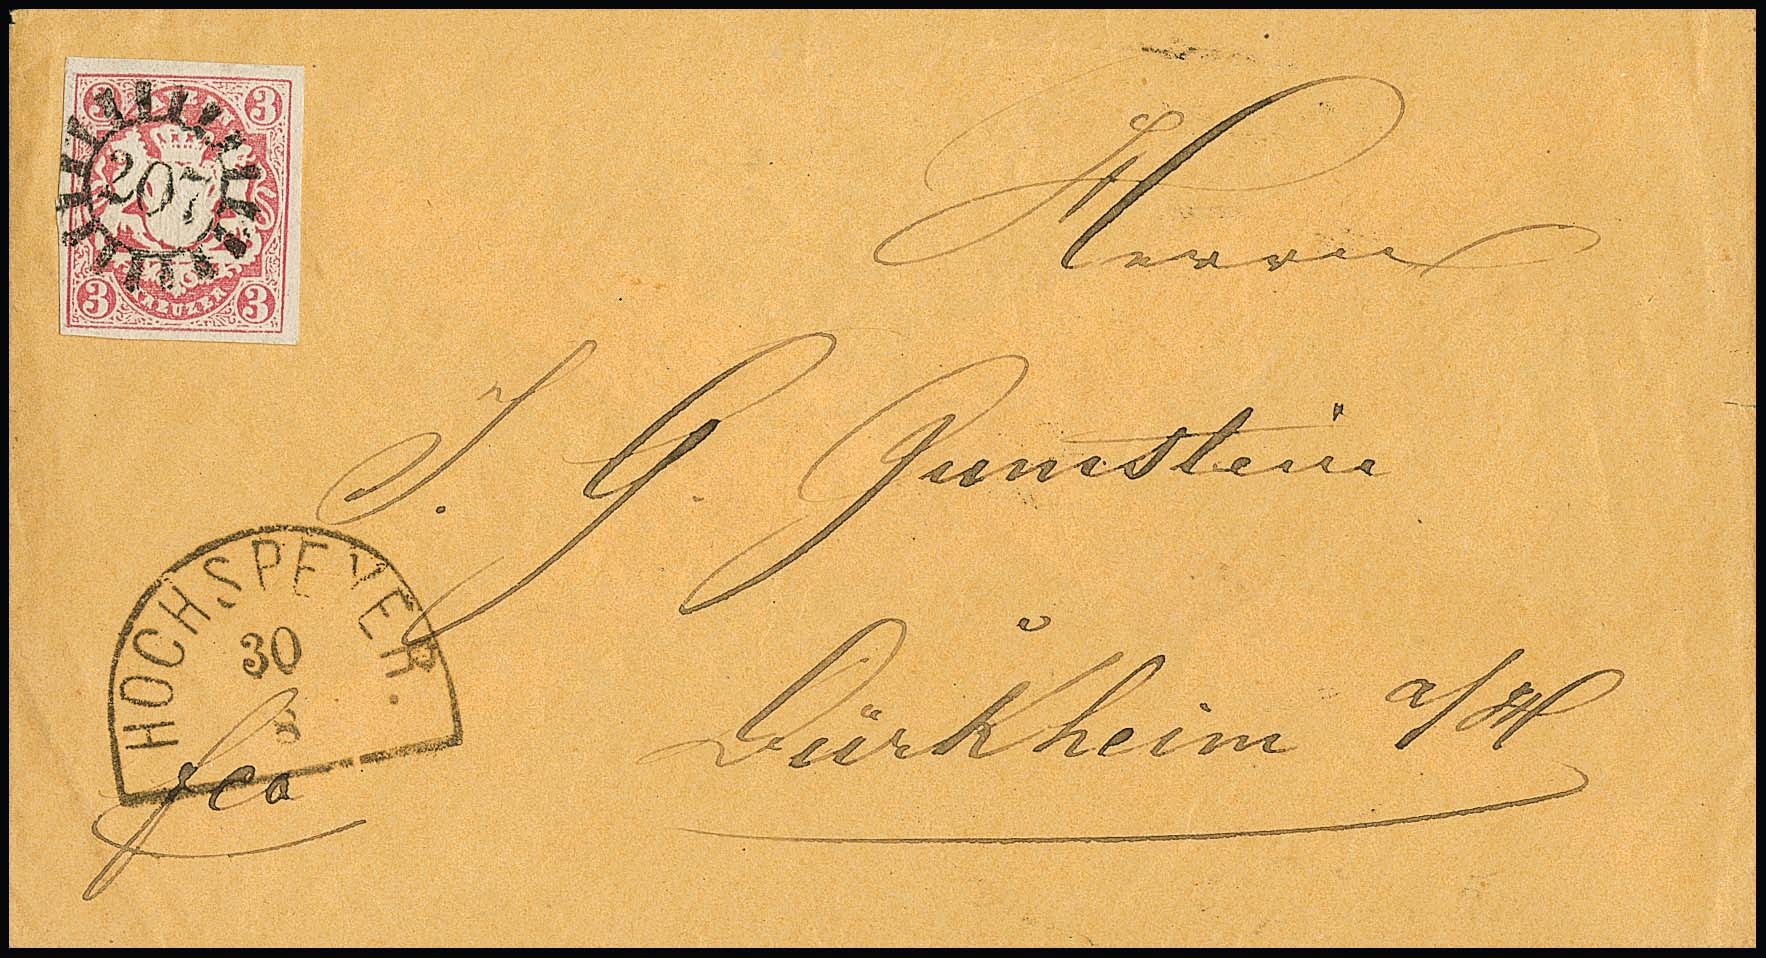 3 3
207
3 KREUZER 3
Herrn
J. G. Zumstein
Dürkheim a/H
HOCHSPEYER.
30
8
fco